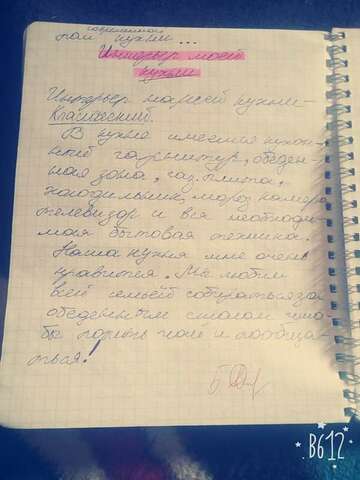 современной
кухни ...
Интерьер моей
кухни
Интерьер нашей кухни-
Классический.
В кухне имеется кухон-
ный гарнитур, обеден-
ная зона, газ. плита,
холодильник, мороз. камера
телевизор и вся необходи-
мая бытовая техника.
Наша кухня мне очень
нравится. Мы любим
всей семьёй собираться за
обеденным столом что-
бы попить чай и пообща-
ться!
B612